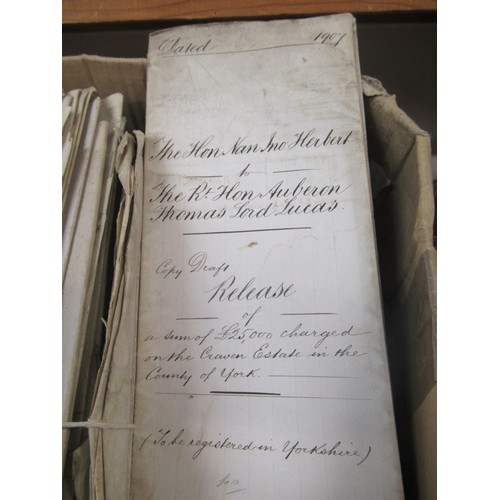 Dated 1907
The Hon Nan Ino Herbert
to
The Rt. Hon Auberon
Thomas Lord Lucas.
Copy Draft
Release
of
a sum of £25,000 charged
on the Craven Estate in the
County of York.
(To be registered in Yorkshire)